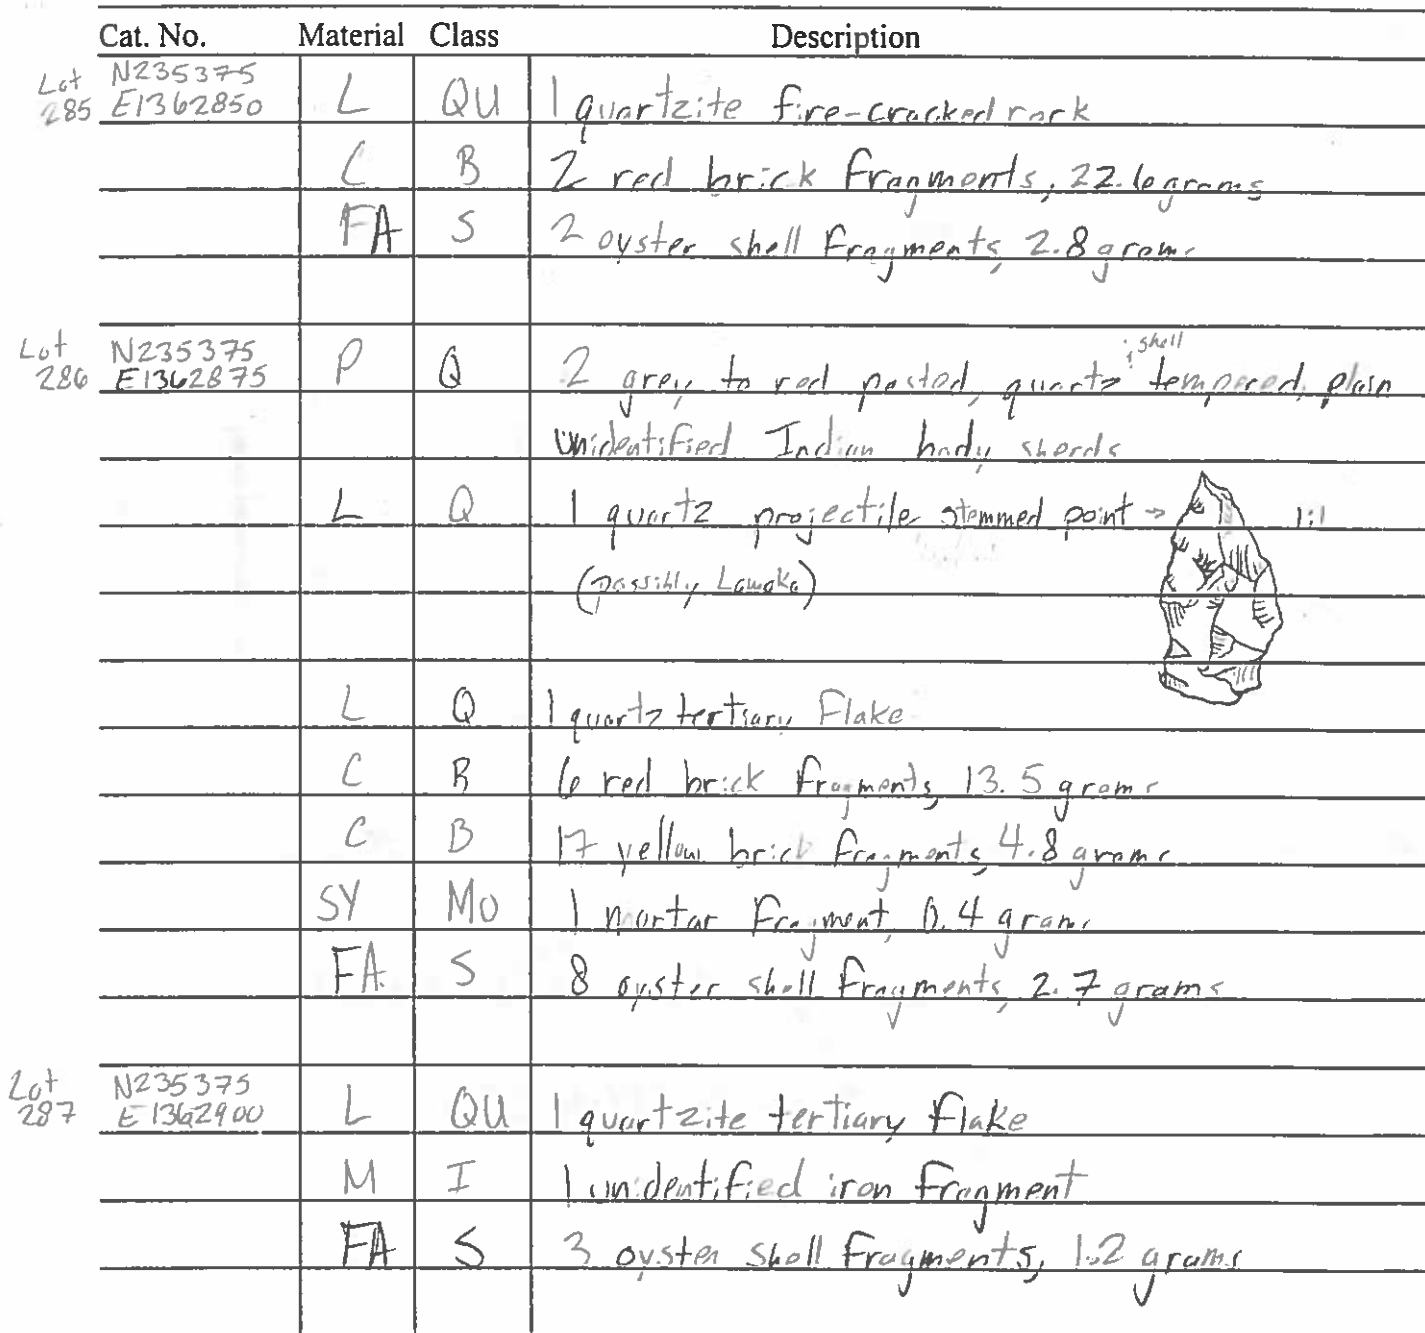 Cat. No. Material Class Description
Lot 285 N235375 E1362850 L QU 1 quartzite fire-cracked rock
C B 2 red brick fragments, 22.6 grams
FA S 2 oyster shell fragments, 2.8 grams
Lot 286 N235375 E1362875 P Q 2 grey to red pasted, quartz ; shell tempered, plain
unidentified Indian body sherds
L Q 1 quartz projectile stemmed point → 1:1
(possibly Lamoka)
L Q 1 quartz tertiary flake
C B 6 red brick fragments, 13.5 grams
C B 17 yellow brick fragments, 4.8 grams
SY MO 1 mortar fragment, 0.4 grams
FA S 8 oyster shell fragments, 2.7 grams
Lot 287 N235375 E1362900 L QU 1 quartzite tertiary flake
M I 1 unidentified iron fragment
FA S 3 oyster shell fragments, 1.2 grams